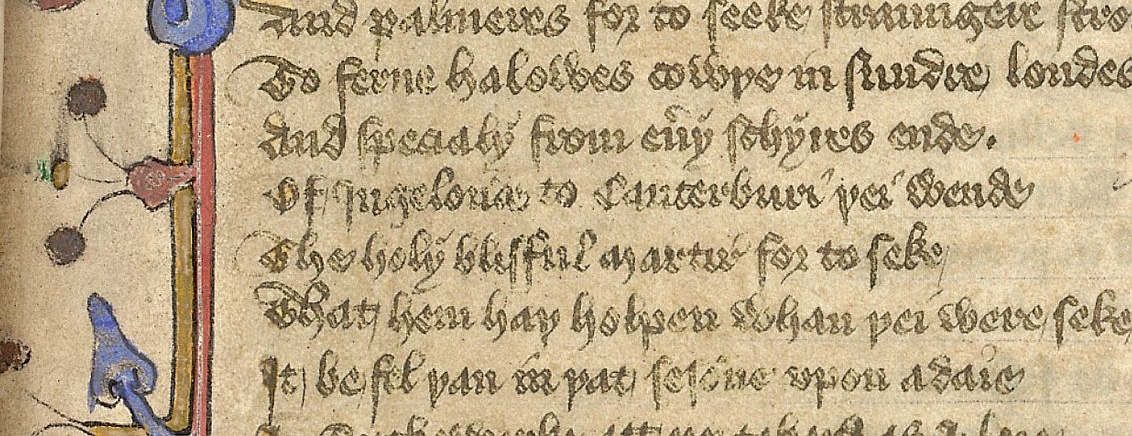 And palmeres for to seeke straungere stro
To ferne halowes cowþe in sundre londes
And specialy from eũy schyres ende.
Of Ingelond to Canterburi þei wende
The holy blisful martir for to seke
That hem haþ holpen whan þei were seke
It be fel þan in þat sesoue vpon a daie